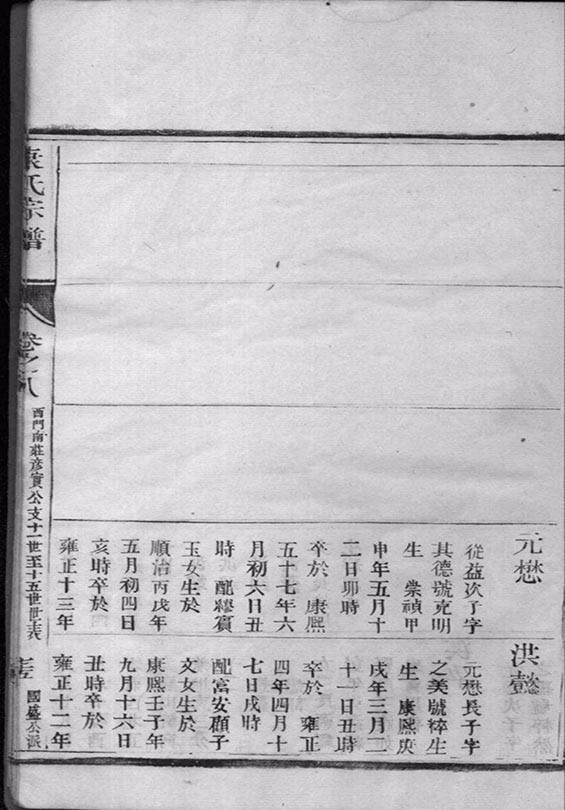 元懋
從益次子字
其德號克明
生 崇禎甲
申年五月十
二日卯時
卒於 康熙
五十七年六
月初六日丑
時 配繆
玉女生於
順治丙戌年
五月初四日
亥時卒於
雍正十三年
洪懿
元懋長子字
之美號粹生
生 康熙庚
戌年三月二
十一日丑時
卒於 雍正
四年四月十
七日戌時
配富安顧子
文女生於
康熙壬子年
九月十六日
丑時卒於
雍正十二年
袁氏宗譜
卷之八
西門南莊彥實公支十一世至十五世世表
國盛公派